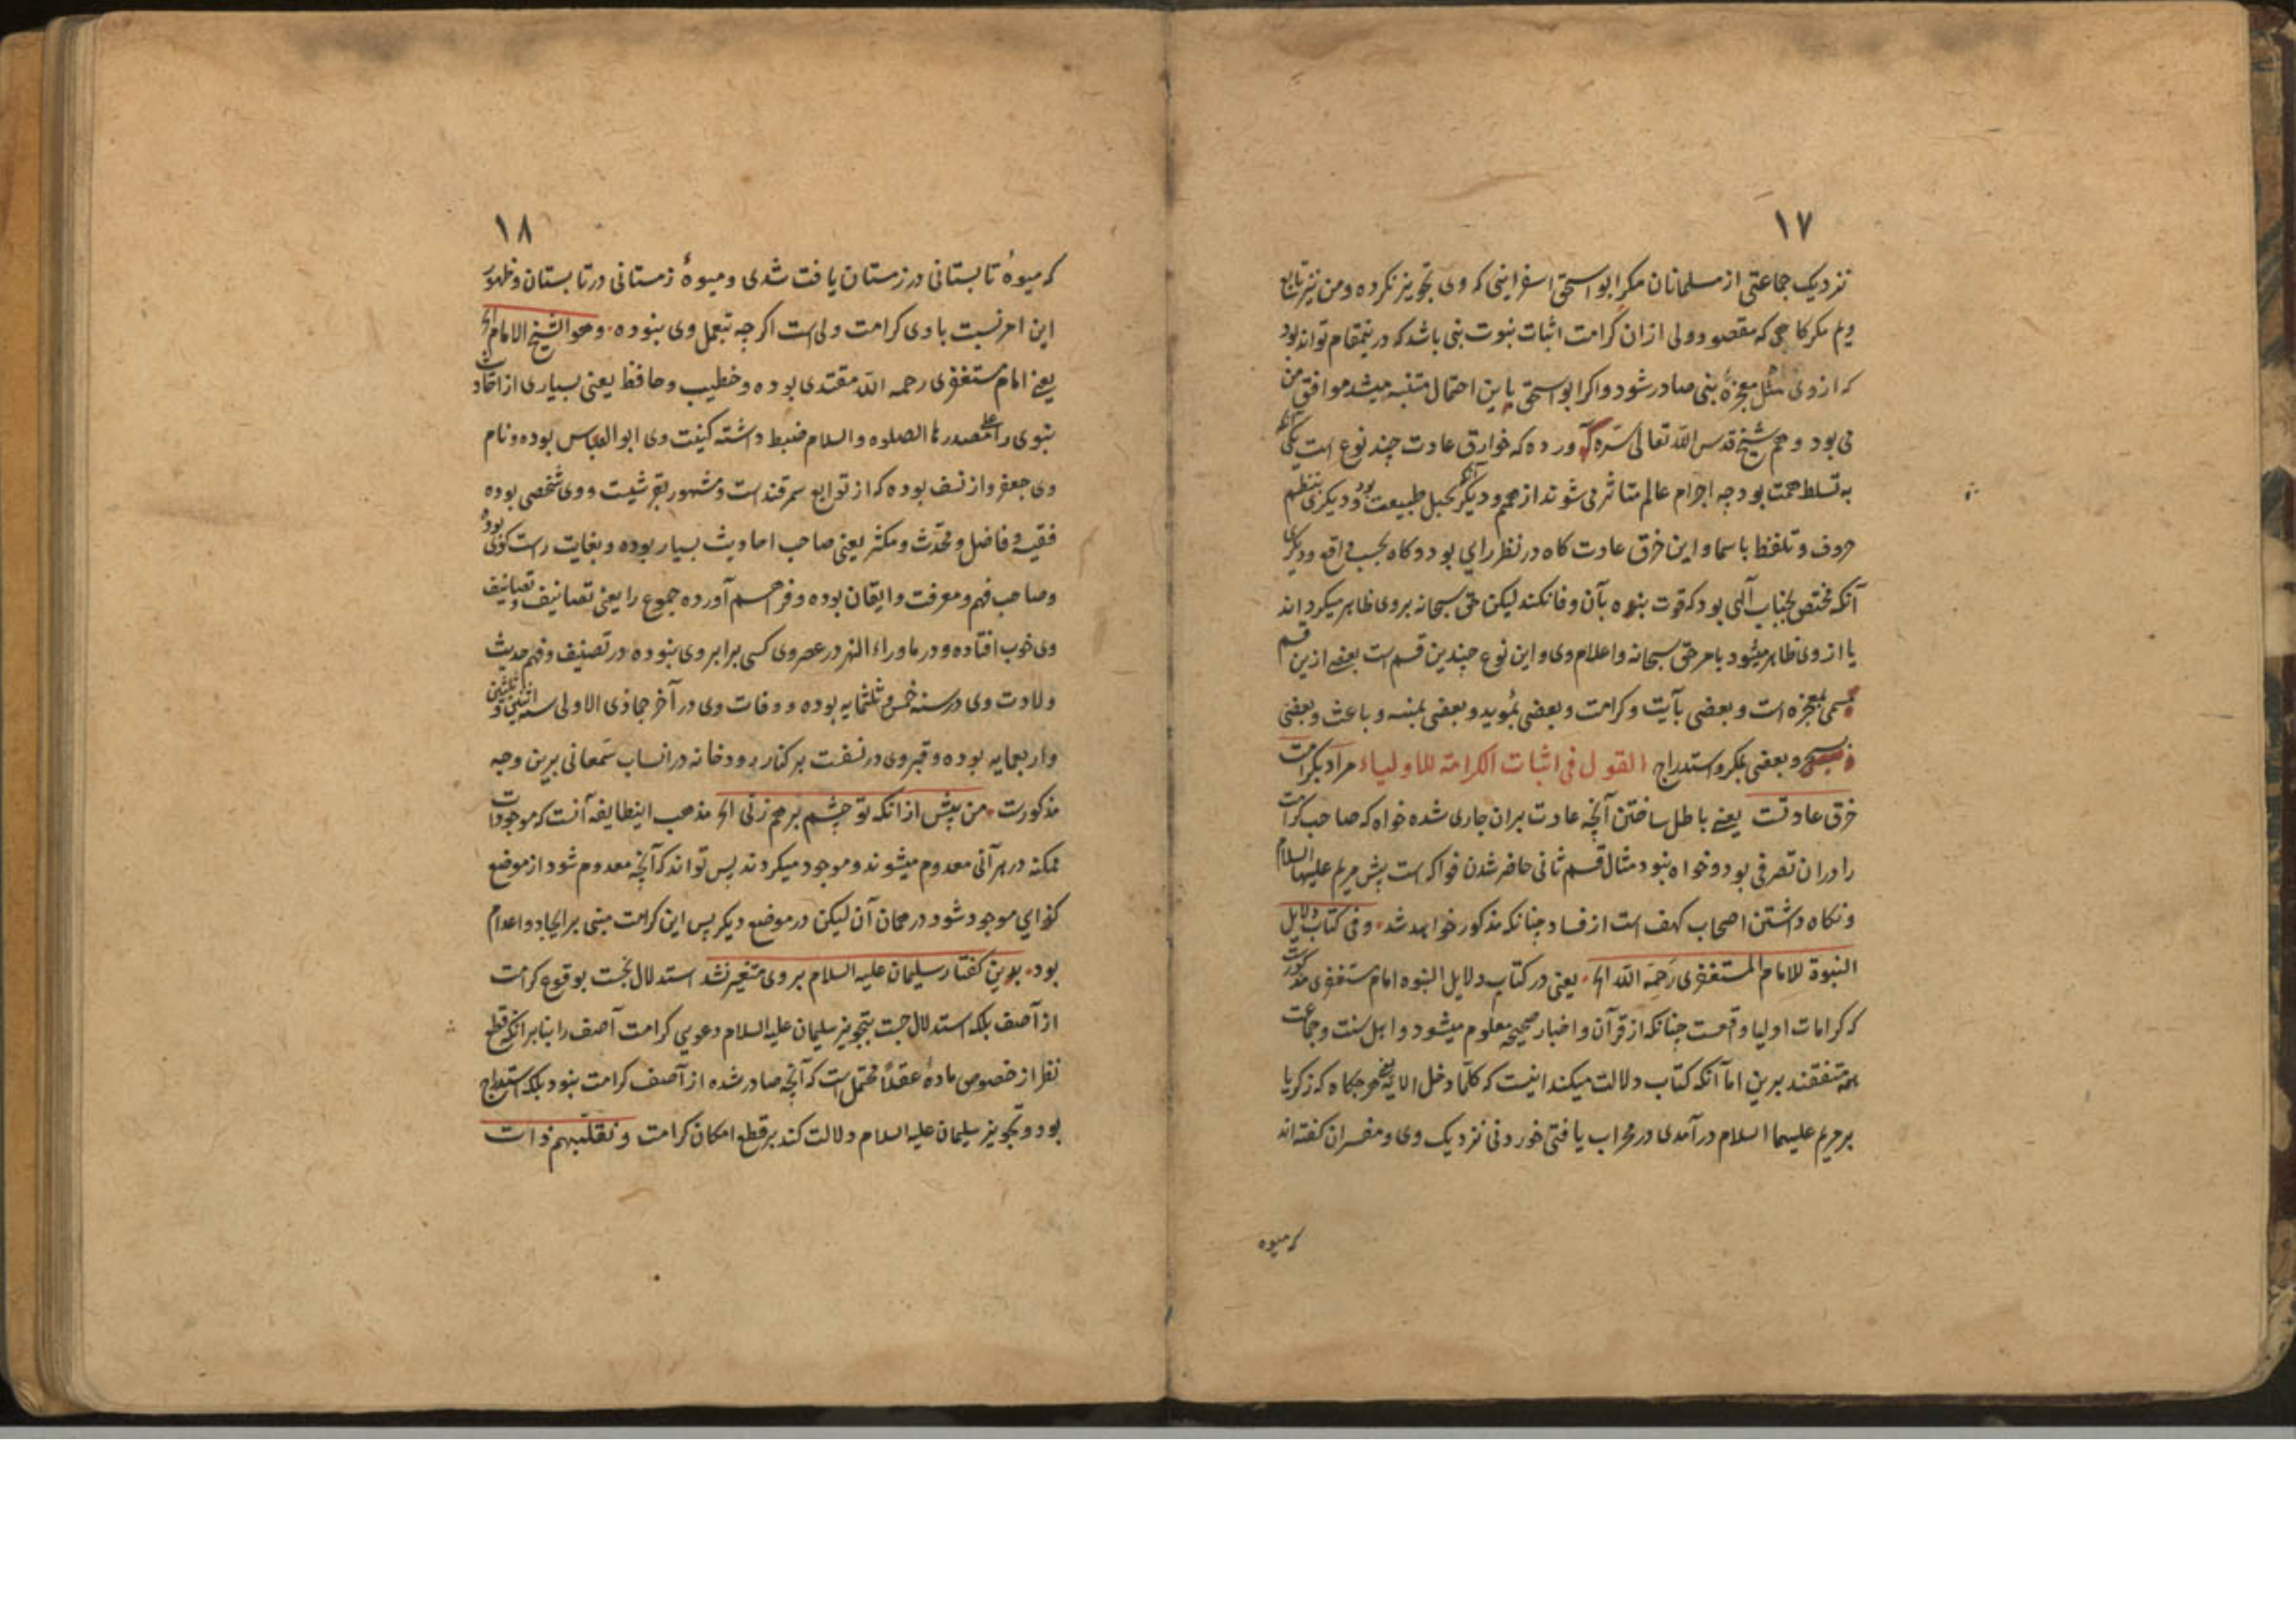 ۱۷
نزدیک جماعتی از مسلمانان مکر ابو اسحق اسفراینی که وی تجویز نکرده و من نیز تابع
ویم مکر کاهی که مقصود ولی ازان کرامت اثبات نبوت نبی باشد که درینمقام تواند بود
که از وی مثل معجزهٔ نبی صادر شود و اکر ابو اسحق باین احتمال متنبه میشد موافق من
می بود و هم شیخ قدس الله تعالی سره آورده که خوارق عادت چند نوع است یکی آنکه
به تسلط همت بود چه اجرام عالم متاثر می شوند از همم و دیکر آنکه بحیل طبیعت بود و دیکری بنظم
حروف و تلفظ باسما و این خرق عادت کاه در نظر رایی بود و کاه بحسب واقع و دیکری
آنکه مختص بجناب آلهی بود که قوت بنوه بآن وفا نکند لیکن حق سبحانه بروی ظاهر میکرداند
یا از وی ظاهر میشود بامر حق سبحانه و اعلام وی و این نوع چندین قسم است بعضے ازین قسم
مسمی بمعجزه است و بعضی بآیت و کرامت و بعضی بمؤید و بعضی بمنبه و باعث و بعضی
و بعضی بمکر و استدراج القول فی اثبات الکرامة للاولیاء مراد بکرامت
خرق عادتست یعنے باطل ساختن آنچه عادت بران جاری شده خواه که صاحب کرامت
را دران تصرفی بود و خواه نبود مثال قسم ثانی حاضر شدن فواکه است پیش مریم علیها السلام
و نکاه داشتن اصحاب کهف است از فساد چنانکه مذکور خواهد شد وفی کتاب دلایل
النبوة للامام المستغفری رحمه الله الخ یعنی در کتاب دلایل النبوه امام مستغفری مذکورست
که کرامات اولیا واقعست چنانکه از قرآن و اخبار صحیحه معلوم میشود و اهل سنت و جماعت
همه متفقند برین اما آنکه کتاب دلالت میکند اینست که کلما دخل الایه یعنی هر جکاه که زکریا
بر مریم علیهما السلام در آمدی در محراب یافتی خوردنی نزدیک وی و مفسران کفته اند
که میوه
۱۸
که میوهٔ تابستانی در زمستان یافت شدی و میوهٔ زمستانی در تابستان و ظهور
این امر نسبت باوی کرامت ولی است اکرچه بتعمل وی نبوده وهو الشیخ الامام الخ
یعنے امام مستغفری رحمه الله مقتدی بوده و خطیب و حافظ یعنی بسیاری از احادیث
نبوی را علی مصدرها الصلوه والسلام ضبط داشته کنیت وی ابو العباس بوده و نام
وی جعفر و از نسف بوده که از توابع سمرقند است و مشهور بقرشیست و وی شخصی بوده
فقیه و فاضل و محدث و مکثر یعنی صاحب احادیث بسیار بوده و بغایت راست کوی بوده
و صاحب فهم و معرفت و ایقان بوده و فراهم آورده جموع را یعنے تصانیف و تصانیف
وی خوب افتاده و در ماوراء النهر در عصر وی کسی برابر وی نبوده در تصنیف و فهم حدیث
ولادت وی در سنه خمس و ثلثمایه بوده و وفات وی در آخر جماذی الاولی سنه اثنین و ثلثین
واربعمایه بوده و قبر وی در نسفت بر کنار رودخانه در انساب سمعانی برین وجه
مذکورست من پیش ازانکه تو چشم بر هم زنی الخ مذهب اینطایفه آنست که موجودات
ممکنه در هر آنی معدوم میشوند و موجود میکردند پس تواند که آنچه معدوم شود از موضع
کذایی موجود شود در همان آن لیکن در موضع دیکر پس این کرامت مبنی بر ایجاد و اعدام
بود بدین کفتار سلیمان علیه السلام بروی متغیر نشد استدلال نجست بوقوع کرامت
از آصف بلکه استدلال جست بتجویز سلیمان علیه السلام دعویی کرامت آصف را بنابر انکه قطع
نظر از خصوص مادهٔ عقلاً محتمل است که آنچه صادر شده از آصف کرامت نبود بلکه استدراج
بود و تجویز سلیمان علیه السلام دلالت کند بر قطع امکان کرامت ونقلبهم ذات